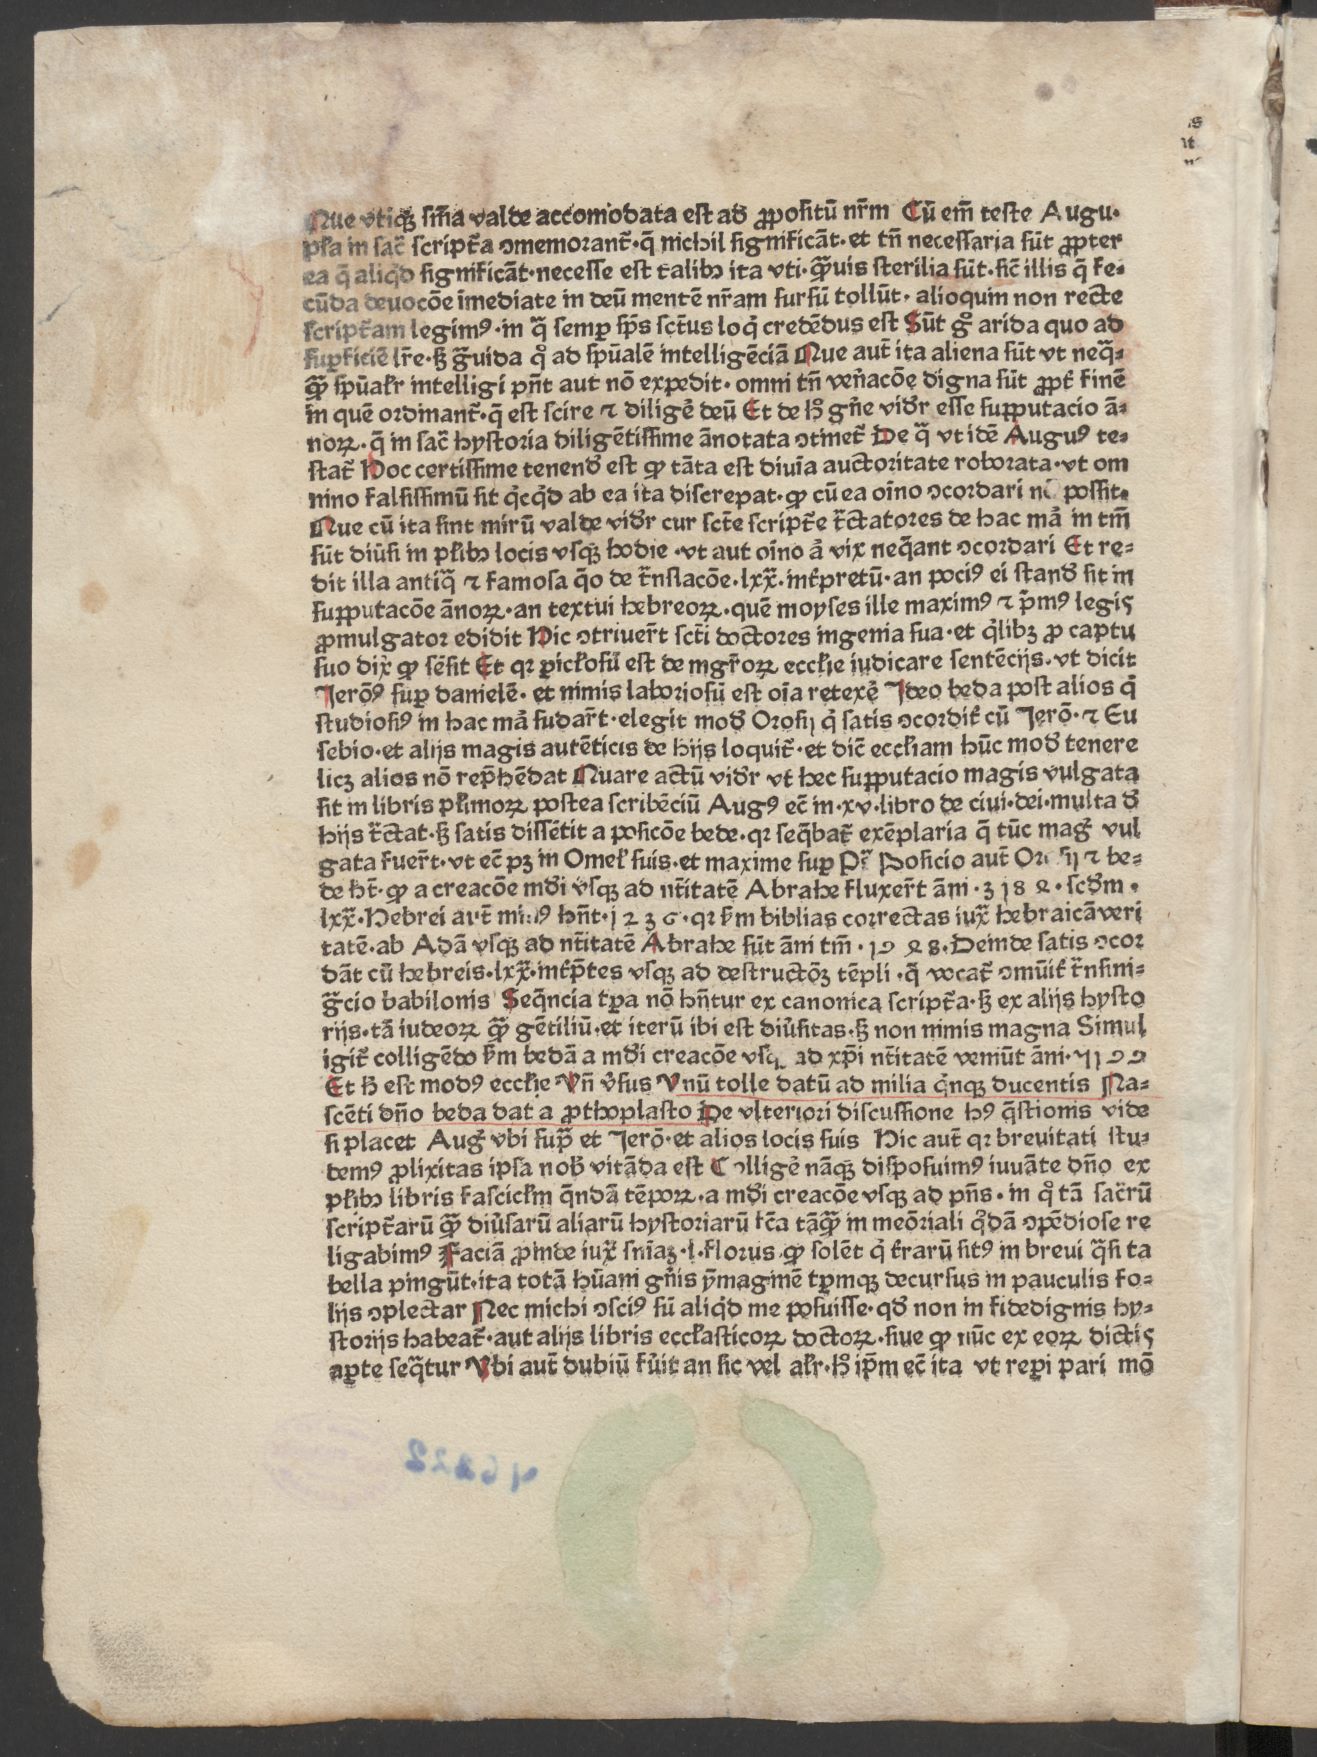 Que vtiqꝫ sm̄a valde accomodata est ad ꝓpositū nr̄m Cū em̄ teste Augu·
pl̄a in sac̄ script̄a ↄmemorant̄· q̄ nichil significāt· et tn̄ necessaria sūt ꝓpter
ea q̄ aliq̇d significāt· necesse est talibꝫ ita vti· q̄uis sterilia sūt· sic̄ illis q̄ fe⸗
cūda deuocōe īmediate in deū mentē nr̄am sursū tollūt· alioquin non recte
script̄am legimꝰ· in q̄ semꝑ sp̄s sct̄us loq̇ credēdus est Sūt gͦ arida quo ad
suꝑficiē lr̄e· sꝫ g̈uida qͦ ad sp̄ualē intelligēciā Que aut̄ ita aliena sūt vt neq̄⸗
q̄ sp̄ualr̄ intelligi pn̄t aut nō expedit· omni tn̄ ven̄acōe digna sūt ꝓpt̄ finē
in quē ordinant̄· q̄ est scire ⁊ diligē deū Et de hͦ gn̄e vidr̄ esse supputacio ā⸗
noꝝ· q̄ in sac̄ hystoria diligētissime ānotata ↄtinet̄ De q̄ vt idē Auguꝰ te⸗
stat̄ Hoc certissime tenend̄ est ꝙ tāta est diuīa auctoritate roborata· vt om
nino falsissimū sit q̇cq̇d ab ea ita discrepat· ꝙ cū ea oīno ↄcordari nō possit·
Que cū ita sint mirū valde vidr̄ cur sct̄e script̄e t̄ctatores de hac mā in tm̄
sūt diūsi in pl̄ibꝫ locis vsqꝫ hodie· vt aut oīno a̓ vix neq̄ant ↄcordari Et re⸗
dit illa antiq̄ ⁊ famosa q̄o de t̄nslacōe· lxx̄· int̄pretū· an pociꝰ ei stand̄ sit in
supputacōe ānoꝝ· an textui hebreoꝝ· quē moyses ille maximꝰ ⁊ p̄mꝰ legis
ꝓmulgator edidit Hic ↄtriuer̄t sct̄i doctores ingenia sua· et q̇libꝫ ꝓ captu
suo dix̄ ꝙ sēsit Et qꝛ ꝑicl̄osū est de mgr̄oꝝ eccl̄ie iudicare sentēcijs· vt dicit
Jerōꝰ suꝑ danielē· et nimis laboriosū est oīa retexē Jdeo beda post alios q̇
studiosiꝰ in hac mā sudar̄t· elegit mod̄ Orosij q̇ satis ↄcordit̄ cū Jerō· ⁊ Eu
sebio· et alijs magis autēticis de hijs loquit̄· et dic̄ eccl̄iam hūc mod̄ tenere
licꝫ alios nō rep̄hēdat Quare actū vidr̄ vt hec supputacio magis vulgata
sit in libris pl̄imoꝝ postea scribēciū Augꝰ ec̄ in· xv· libro de ciui· dei· multa d̄
hijs t̄ctat· sꝫ satis dissētit a posicōe bede· qꝛ seq̄bat̄ exēplaria q̄ tūc mag̓ vul
gata fuer̄t· vt ec̄ pꝫ in Omel̄ suis· et maxime suꝑ Ps̄ Posicio aut̄ Orosij ⁊ be⸗
de ht̄· ꝙ a creacōe mdi̅ vsqꝫ ad nt̄itatē Abrahe fluxer̄t āni· 3184· scd̄m·
lxx̄· Hebrei aut̄ minꝰ hn̄t· 1236· qꝛ sm̄ biblias correctas iux̄ hebraicā veri
tatē· ab Adā vsqꝫ ad nt̄itatē Abrahe sūt āni tm̄· 1948· Deinde satis ↄcor
dāt cū hebreis· lxx̄· int̄p̄tes vsqꝫ ad destructōꝫ tēpli· q̄ vocat̄ ↄmūit̄ t̄nsmi⸗
g̈cio babilonis Seq̄ncia tꝑa nō hn̄tur ex canonica script̄a· sꝫ ex alijs hysto
rijs· tā iudeoꝝ q̄ gētiliū· et iterū ibi est diūsitas· sꝫ non nimis magna Simul
igit̄ colligēdo sm̄ bedā a mdi̅ creacōe vsqꝫ ad xp̄i nt̄itatē veniūt āni· 5199
Et hͦ est modꝰ eccl̄ie Vn̄ v̓sus Vnū tolle datū ad milia q̇nqꝫ ducentis Na⸗
scēti dn̄o beda dat a ꝓthoplasto De vlteriori discussione hꝰ q̄stionis vide
si placet Aug̓ vbi sup̄ et Jerō· et alios locis suis Hic aut̄ qꝛ breuitati stu⸗
demꝰ ꝓlixitas ipsa nob̄ vitāda est Colligē nāqꝫ disposuimꝰ iuuāte dn̄o ex
pl̄ibꝫ libris fascicl̄m q̄ndā tēpoꝝ· a mdi̅ creacōe vsqꝫ ad pn̄s· in qͦ tā sac̄rū
script̄arū q̄ diūsarū aliarū hystoriarū fc̄a tāq̄ in meōriali qͦdā ↄpēdiose re
ligabimꝰ Faciā ꝓinde iux̄ sn̄iaꝫ· l· florus· ꝙ solēt q̇ t̄rarū sitꝰ in breui q̄si ta
bella pingūt· ita totā hūani gn̄is ymaginē tꝑmqꝫ decursus in pauculis fo⸗
lijs ↄplectar Nec michi ↄsciꝰ sū aliq̇d me posuisse· qd̄ non in fidedignis hy⸗
storijs habeat̄· aut alijs libris eccl̄asticoꝝ doctoꝝ· siue ꝙ nūc ex eoꝝ dictis
aꝑte seq̄tur Vbi aut̄ dubiū fūit an sic vel al̄r· hͦ ip̄m ec̄ ita vt reꝑi pari mō